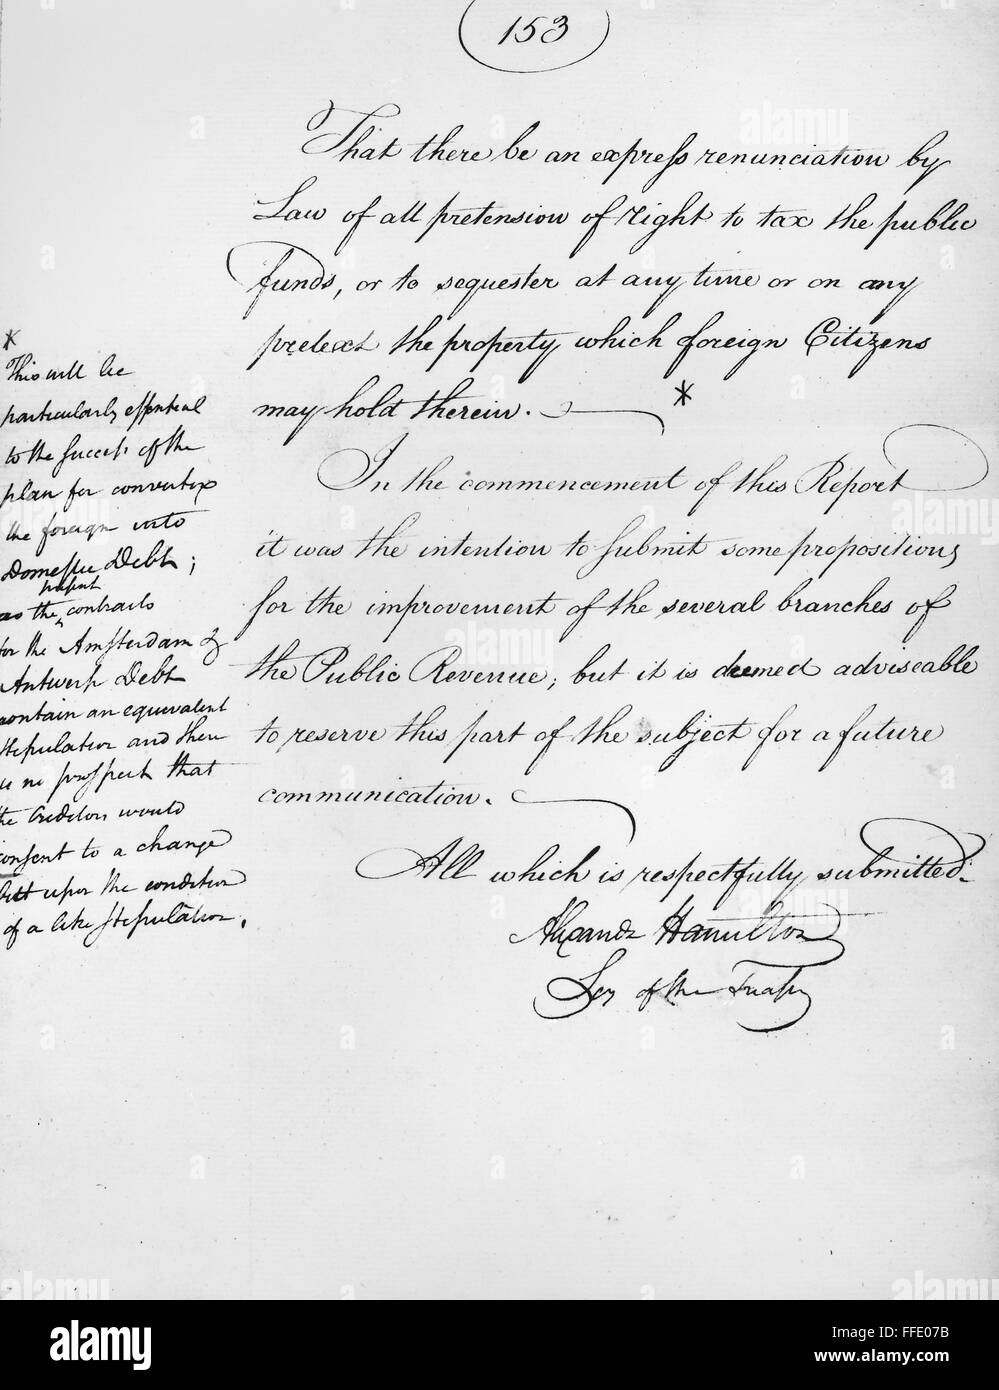 153
That there be an express renunciation by
Law of all pretension of right to tax the public
funds, or to sequester at any time or on any
pretext the property which foreign Citizens
may hold therein. *
In the commencement of this Report
it was the intention to submit some propositions
for the improvement of the several branches of
the Public Revenue; but it is deemed adviseable
to reserve this part of the subject for a future
communication.
All which is respectfully submitted.
Alexander Hamilton
Secy of the Treasy
*
This will be
particularly essential
to the success of the
plan for converting
the foreign into
Domestic Debt;
present
as the ^ contracts
for the Amsterdam &
Antwerp Debt
contain an equivalent
stipulation and there
is no prospect that
the Creditors would
consent to a change
but upon the condition
of a like stipulation.
alamy
Image ID: FFE07B
www.alamy.com